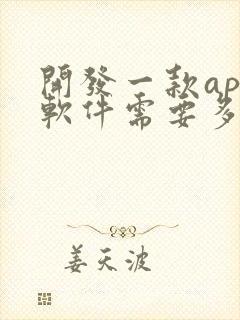 開發一款ap
軟件需要多
姜天波